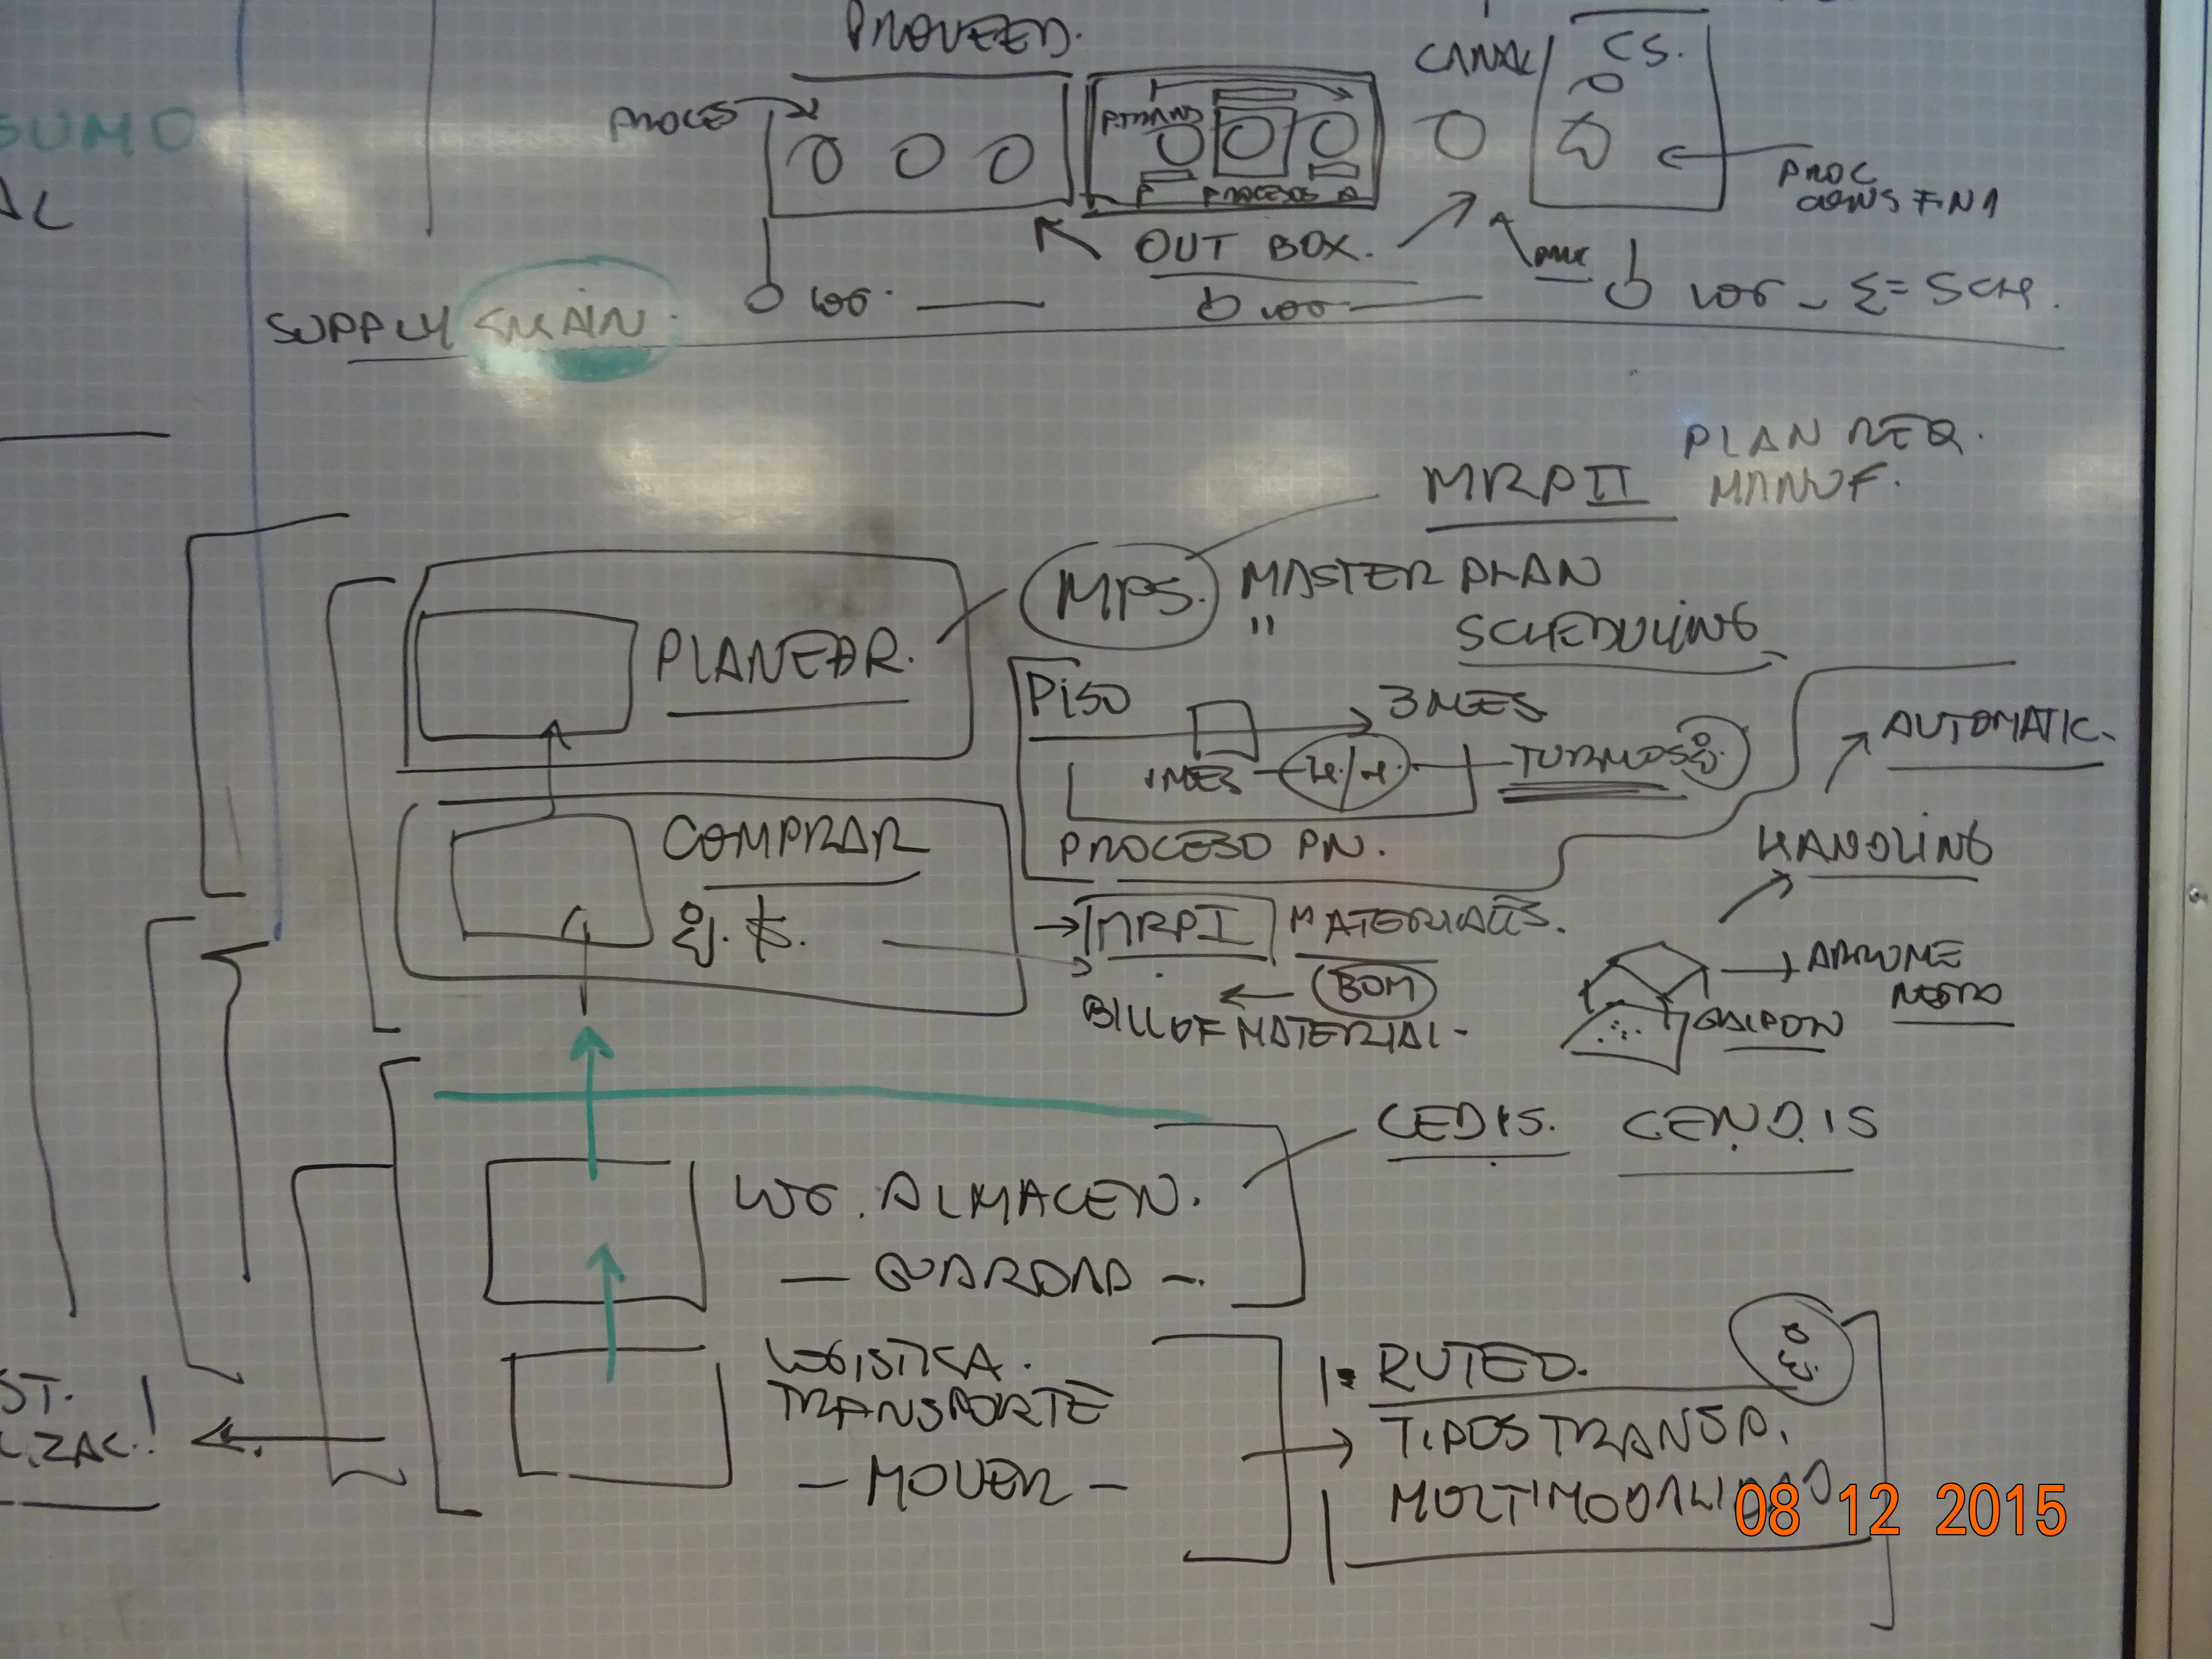 PROVEED.
CANAL
CS.
PROCES
P
PROCESOS
PROC
CONS FINA
OUT BOX.
SUMO
AL
SUPPLY CHAIN.
LOG.
LOG
LOG - Σ= SCH.
MRP II
PLAN REQ.
MANUF.
MPS. MASTER PLAN
" SCHEDULING
PLANEAR.
PISO
3 MES
1 MES
TURNOS
PROCESO PN.
AUTOMATIC.
HANDLING
COMPRAR
MRP I MATERIALES.
BOM
BILL OF MATERIAL -
ARRUME
NEGRO
GALPON
CEDIS. CEN.D.IS
LOG. ALMACEN.
- GUARDAR -.
LOGISTICA.
TRANSPORTE
- MOVER -
RUTEO.
TIPOS TRANSP.
MULTIMODALIDAD
ST.
ZAC.!
08 12 2015